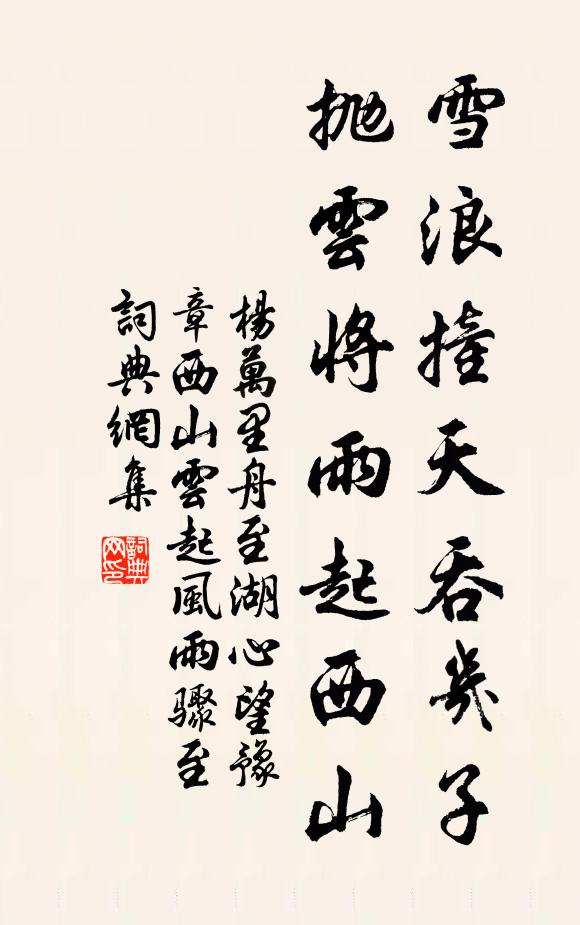 雪浪撞天吞幾子
拋雲將雨起西山
楊萬里舟至湖心望豫
章西山雲起風雨驟至
詞典網集
詞典
网印